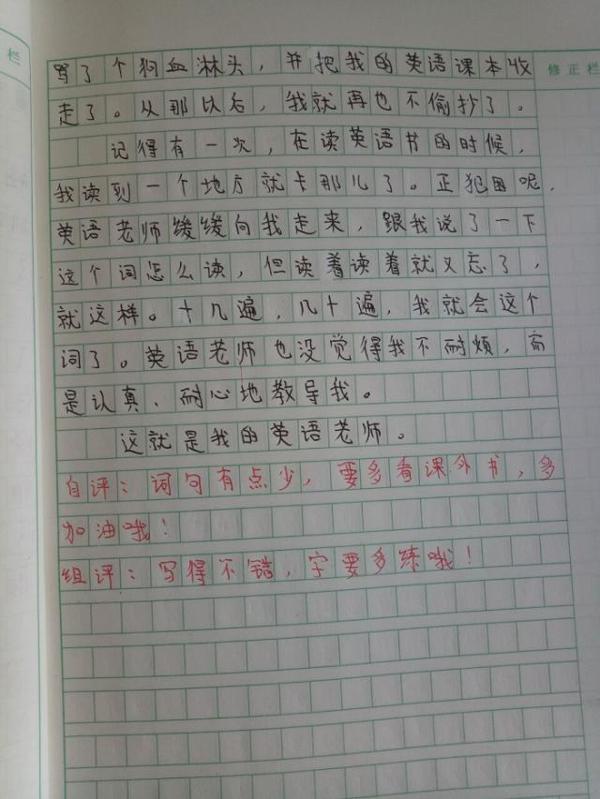 栏
修正栏
骂了个狗血淋头，并把我的英语课本收
走了。从那以后，我就再也不偷抄了。
记得有一次，在读英语书的时候，
我读到一个地方就卡那儿了。正犯困呢，
英语老师缓缓向我走来，跟我说了一下
这个词怎么读，但读着读着就又忘了，
就这样。十几遍，几十遍，我就会这个
词了。英语老师也没觉得我不耐烦，而
是认真、耐心地教导我。
这就是我的英语老师。
自评：词句有点少，要多看课外书，多
加油哦！
组评：写得不错，字要多练哦！